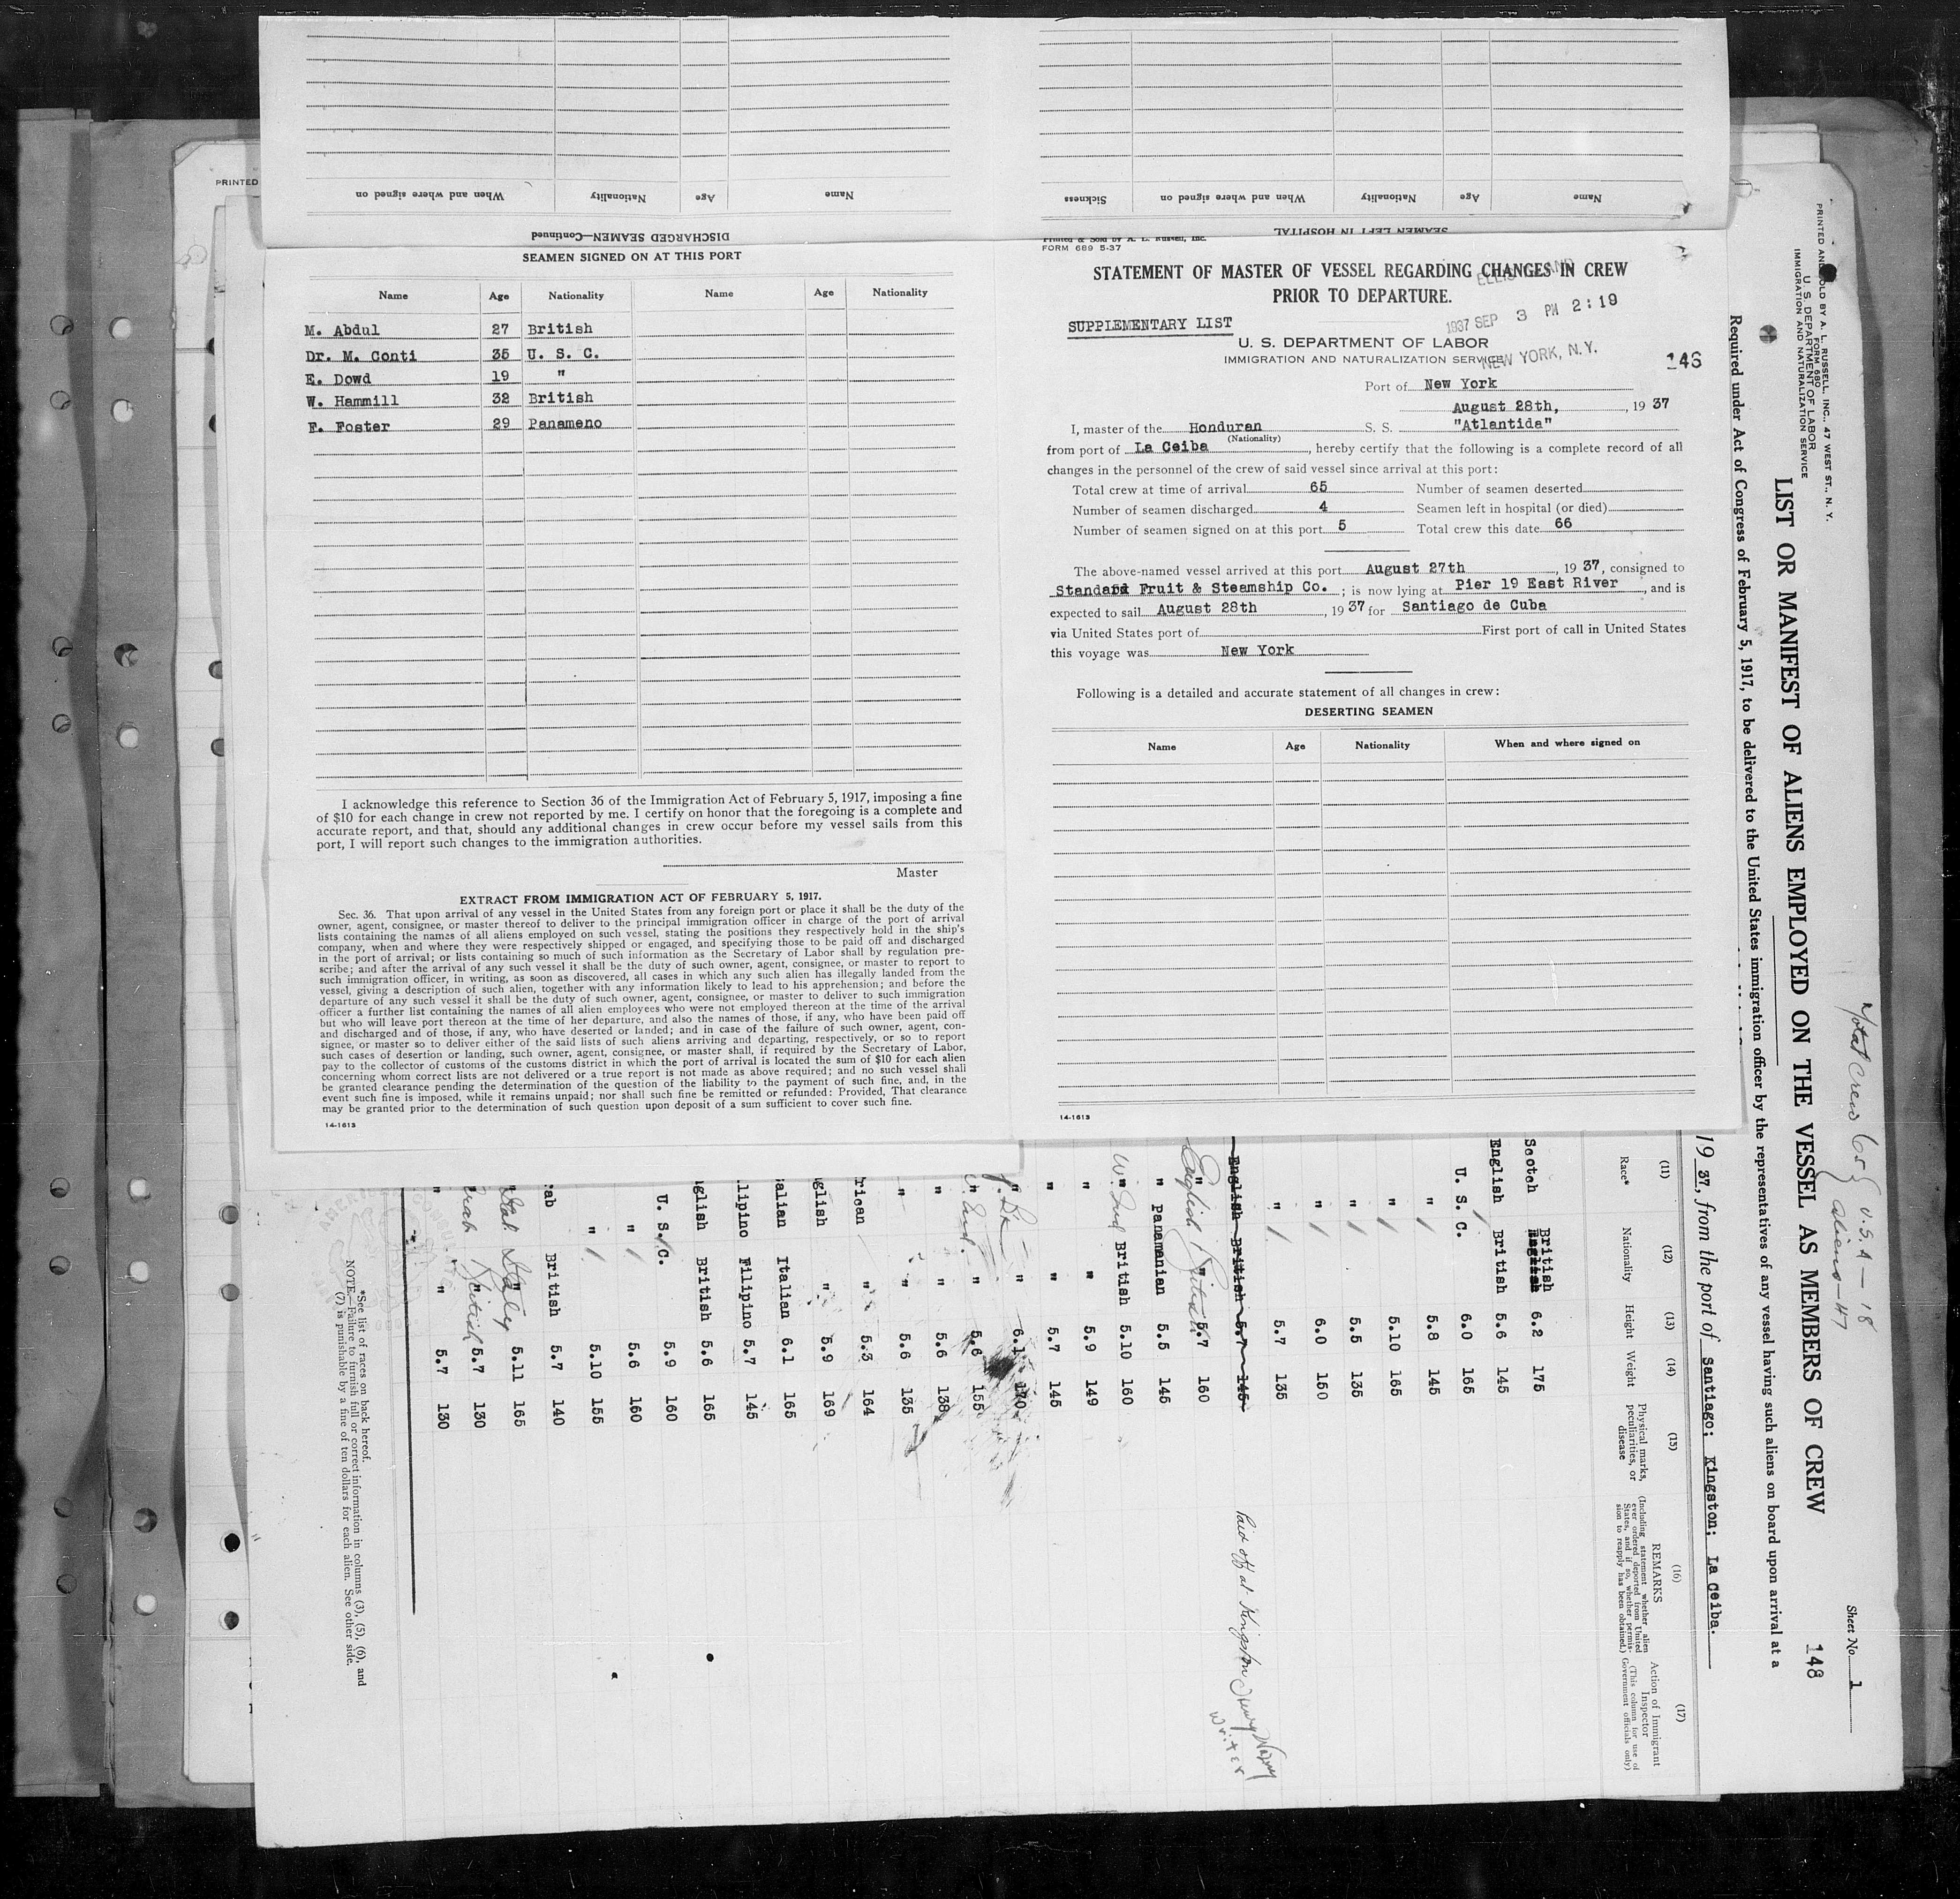 Name Age Nationality When and where signed on
DISCHARGED SEAMEN—Continued
Name Age Nationality When and where signed on Sickness
SEAMEN LEFT IN HOSPITAL
SEAMEN SIGNED ON AT THIS PORT
Name Age Nationality Name Age Nationality
M. Abdul 27 British
Dr. M. Conti 35 U. S. C.
E. Dowd 19 "
W. Hammill 32 British
F. Foster 29 Panameno
I acknowledge this reference to Section 36 of the Immigration Act of February 5, 1917, imposing a fine
of $10 for each change in crew not reported by me. I certify on honor that the foregoing is a complete and
accurate report, and that, should any additional changes in crew occur before my vessel sails from this
port, I will report such changes to the immigration authorities.
Master
EXTRACT FROM IMMIGRATION ACT OF FEBRUARY 5, 1917.
Sec. 36. That upon arrival of any vessel in the United States from any foreign port or place it shall be the duty of the
owner, agent, consignee, or master thereof to deliver to the principal immigration officer in charge of the port of arrival
lists containing the names of all aliens employed on such vessel, stating the positions they respectively hold in the ship's
company, when and where they were respectively shipped or engaged, and specifying those to be paid off and discharged
in the port of arrival; or lists containing so much of such information as the Secretary of Labor shall by regulation pre-
scribe; and after the arrival of any such vessel it shall be the duty of such owner, agent, consignee, or master to report to
such immigration officer, in writing, as soon as discovered, all cases in which any such alien has illegally landed from the
vessel, giving a description of such alien, together with any information likely to lead to his apprehension; and before the
departure of any such vessel it shall be the duty of such owner, agent, consignee, or master to deliver to such immigration
officer a further list containing the names of all alien employees who were not employed thereon at the time of the arrival
but who will leave port thereon at the time of her departure, and also the names of those, if any, who have been paid off
and discharged and of those, if any, who have deserted or landed; and in case of the failure of such owner, agent, con-
signee, or master so to deliver either of the said lists of such aliens arriving and departing, respectively, or so to report
such cases of desertion or landing, such owner, agent, consignee, or master shall, if required by the Secretary of Labor,
pay to the collector of customs of the customs district in which the port of arrival is located the sum of $10 for each alien
concerning whom correct lists are not delivered or a true report is not made as above required; and no such vessel shall
be granted clearance pending the determination of the question of the liability to the payment of such fine, and, in the
event such fine is imposed, while it remains unpaid; nor shall such fine be remitted or refunded: Provided, That clearance
may be granted prior to the determination of such question upon deposit of a sum sufficient to cover such fine.
14-1613
Printed & Sold by A. L. Russell, Inc.
FORM 689 5-37
STATEMENT OF MASTER OF VESSEL REGARDING CHANGES IN CREW
PRIOR TO DEPARTURE.
ELLIS ISLAND
1937 SEP 3 PM 2:19
NEW YORK, N.Y.
SUPPLEMENTARY LIST
U. S. DEPARTMENT OF LABOR
IMMIGRATION AND NATURALIZATION SERVICE
146
Port of New York
August 28th, , 19 37
I, master of the Honduran S. S. "Atlantida"
(Nationality)
from port of La Ceiba , hereby certify that the following is a complete record of all
changes in the personnel of the crew of said vessel since arrival at this port:
Total crew at time of arrival 65 Number of seamen deserted
Number of seamen discharged 4 Seamen left in hospital (or died)
Number of seamen signed on at this port 5 Total crew this date 66
The above-named vessel arrived at this port August 27th , 19 37, consigned to
Standard Fruit & Steamship Co. ; is now lying at Pier 19 East River , and is
expected to sail August 28th , 19 37 for Santiago de Cuba
via United States port of First port of call in United States
this voyage was New York
Following is a detailed and accurate statement of all changes in crew:
DESERTING SEAMEN
Name Age Nationality When and where signed on
14-1613
PRINTED
PRINTED AND SOLD BY A. L. RUSSELL, INC., 47 WEST ST., N. Y.
FORM 680
U. S. DEPARTMENT OF LABOR
IMMIGRATION AND NATURALIZATION SERVICE
Sheet No. 1
148
Total crew 65 { U.S.A — 18
Aliens — 47
LIST OR MANIFEST OF ALIENS EMPLOYED ON THE VESSEL AS MEMBERS OF CREW
Required under Act of Congress of February 5, 1917, to be delivered to the United States immigration officer by the representatives of any vessel having such aliens on board upon arrival at a
19 37, from the port of Santiago; Kingston; La Ceiba.
(11) (12) (13) (14) (15) (16) (17)
Race* Nationality Height Weight Physical marks, peculiarities, or disease
REMARKS
(Including statement whether alien ever ordered deported from United States, and if so, whether permission to reapply has been obtained.)
Action of Immigrant Inspector
(This column for use of Government officials only)
Scotch British 6.2 175
English British 5.6 145
U. S. C. 6.0 165
" 5.8 145
" 5.10 165
" 5.5 135
" 6.0 150
" 5.7 135
English British 5.7 145 Paid off at Kingston
Writer
English British 5.7 160
" Panamanian 5.5 145
W. Ind British 5.10 160
" " 5.9 149
" " 5.7 145
" 6.1 170
" " 5.6 155
" " 5.6 138
" " 5.6 135
rican " 5.3 164
glish " 5.9 169
alian Italian 6.1 165
lipino Filipino 5.7 145
glish British 5.6 165
U. S. C. 5.9 160
" 5.6 160
" 5.10 155
ab British 5.7 140
Ital. Italy 5.11 165
Arab British 5.7 130
" " 5.7 130
*See list of races on back hereof.
NOTE.—Failure to furnish full or correct information in columns (3), (5), (6), and
(7) is punishable by a fine of ten dollars for each alien. See other side.